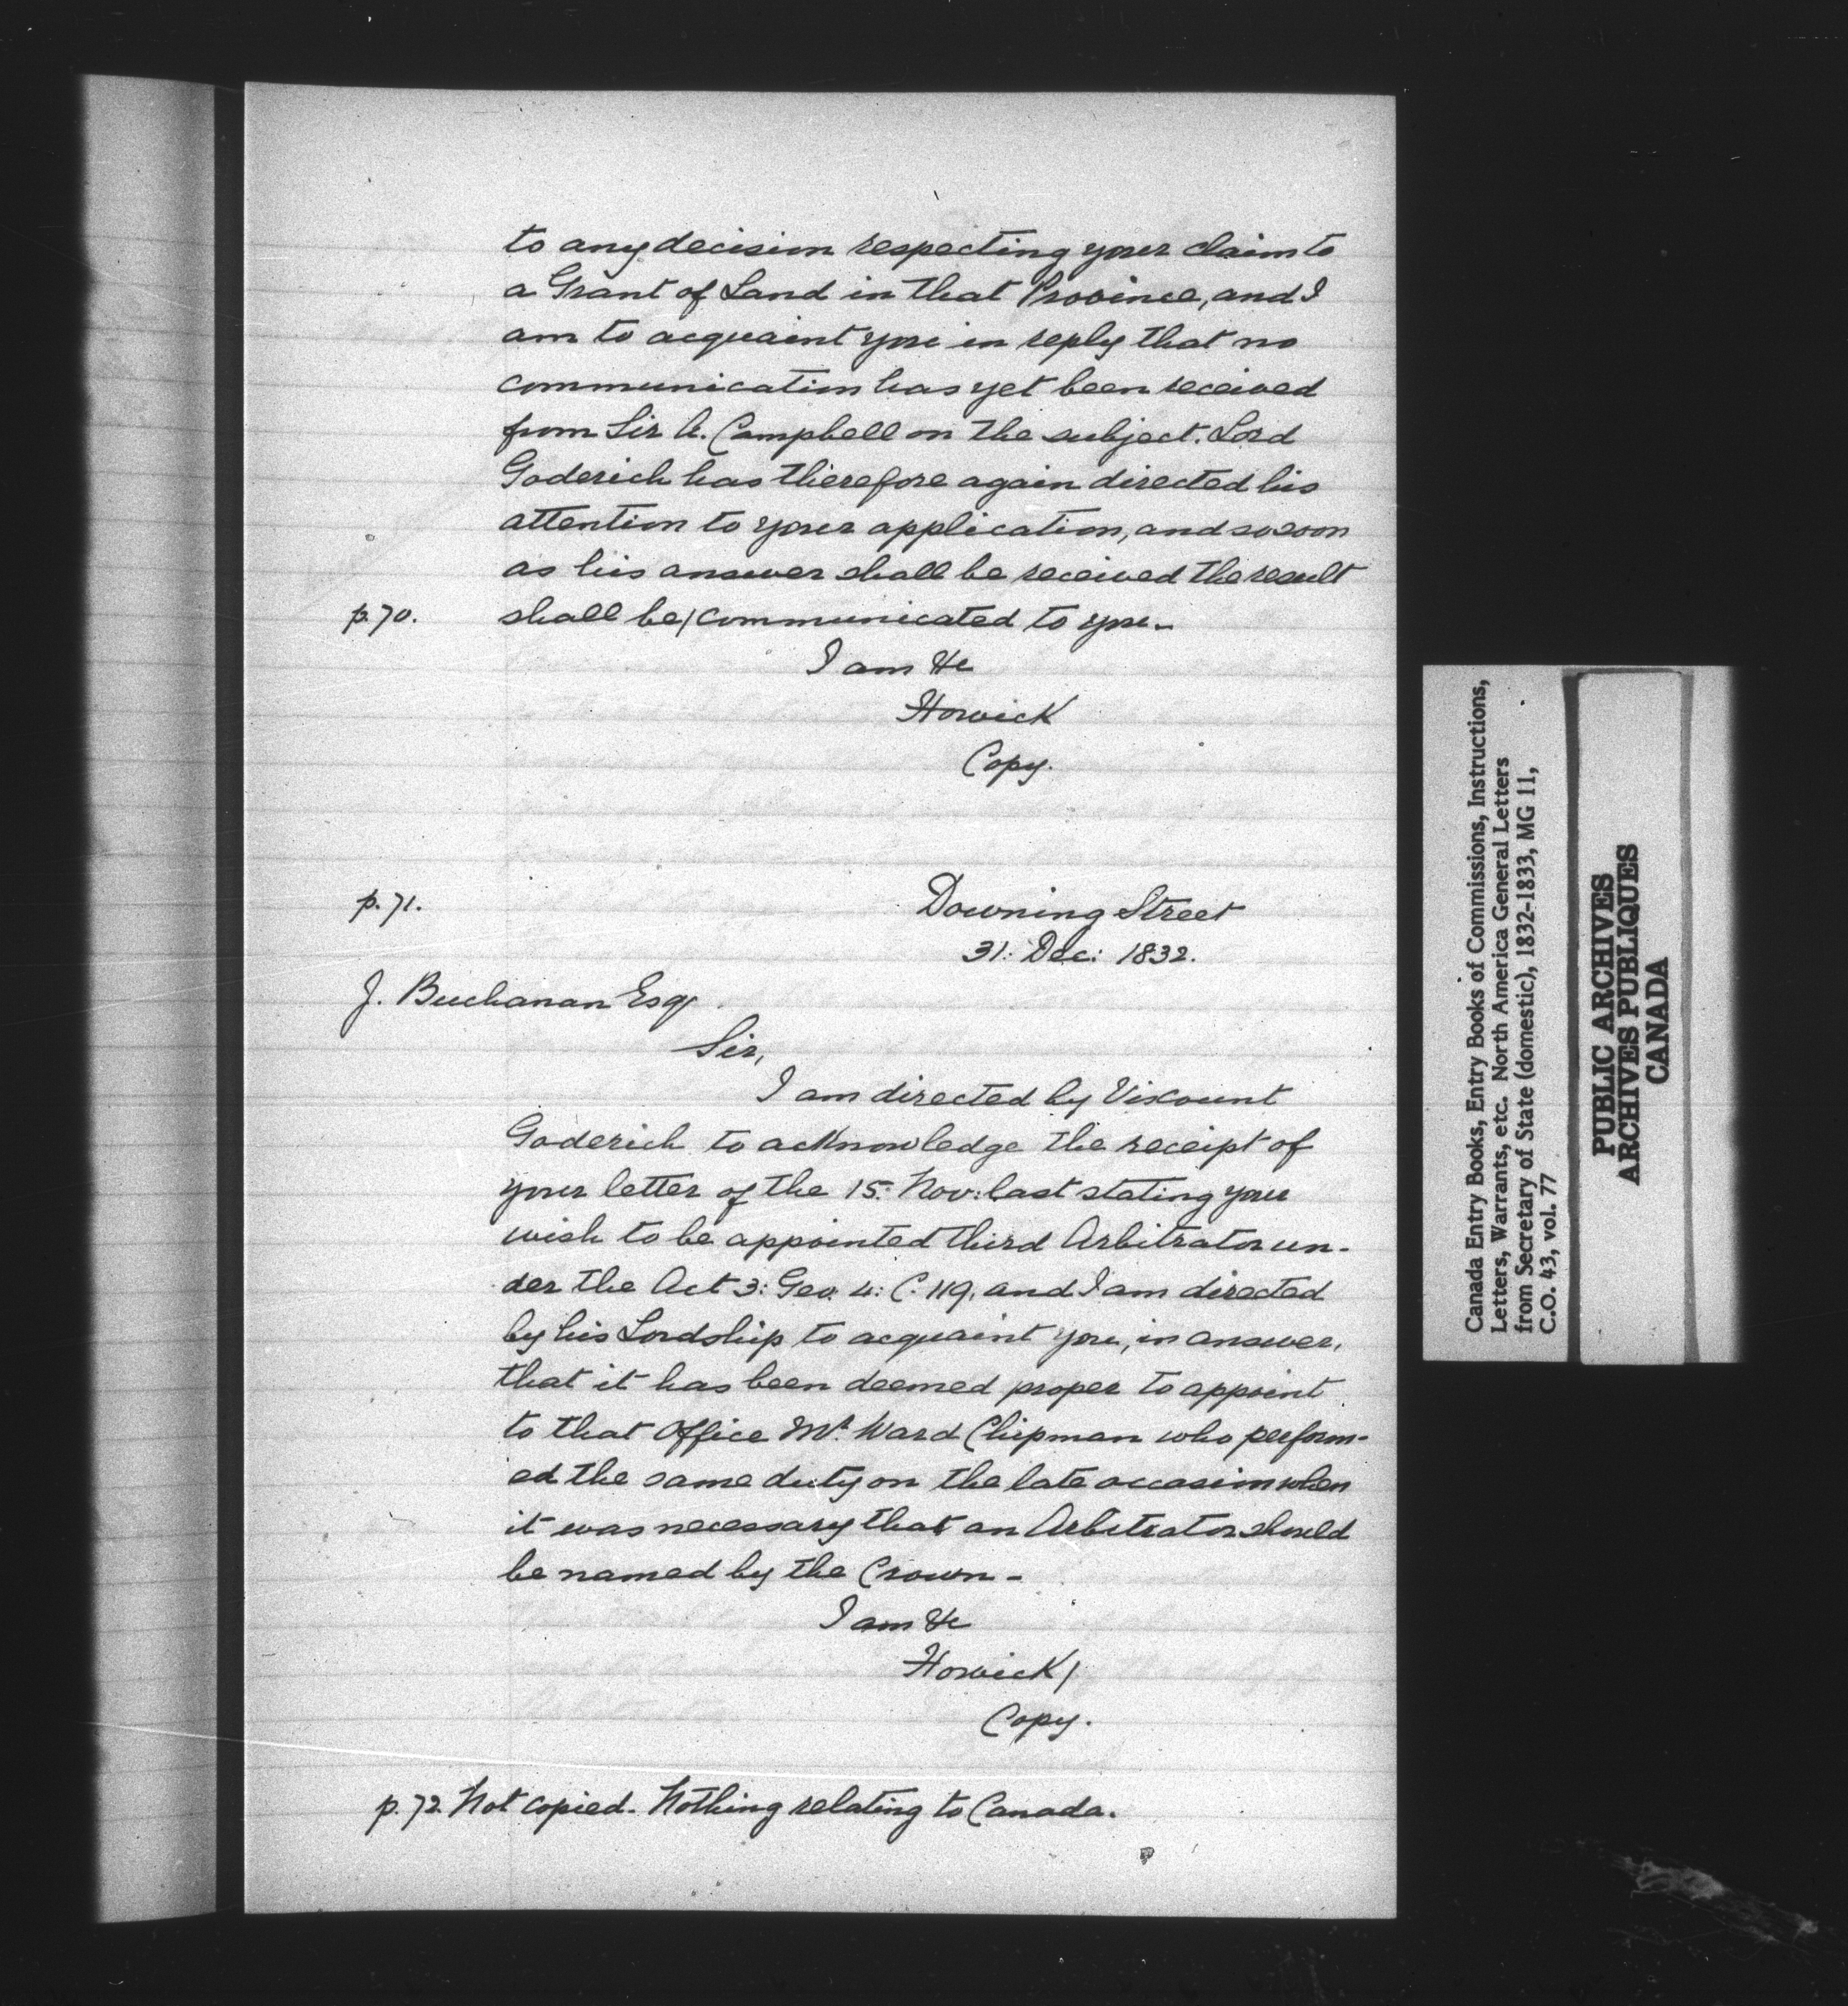 to any decision respecting your claim to
a Grant of Land in that Province, and I
am to acquaint you in reply that no
communication has yet been received
from Sir A. Campbell on the subject. Lord
Goderich has therefore again directed his
attention to your application, and so soon
as his answer shall be received the result
p. 70. shall be/communicated to you.
I am &c
Howick
Copy.
p. 71.
Downing Street
31: Dec: 1832.
J. Buchanan Esqr.
Sir,
I am directed by Viscount
Goderich to acknowledge the receipt of
your letter of the 15: Nov: last stating your
wish to be appointed third Arbitrator un-
der the Act 3: Geo. 4: C. 119. and I am directed
by his Lordship to acquaint you, in answer,
that it has been deemed proper to appoint
to that Office Mr. Ward Chipman who perform-
ed the same duty on the late occasion when
it was necessary that an Arbitrator should
be named by the Crown -
I am &c
Howick/
Copy.
p. 72. Not copied. Nothing relating to Canada.
Canada Entry Books, Entry Books of Commissions, Instructions,
Letters, Warrants, etc. North America General Letters
from Secretary of State (domestic), 1832-1833, MG 11,
C.O. 43, vol. 77
PUBLIC ARCHIVES
ARCHIVES PUBLIQUES
CANADA